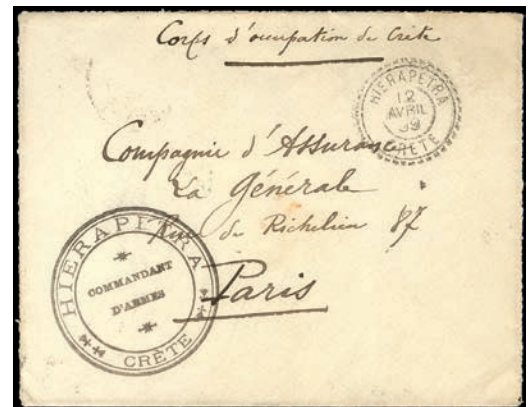 Corps d'occupation de Crète
HIERAPETRA
12
AVRIL
99
CRETE
Compagnie d'Assurance
La Générale
Rue de Richelieu 87
Paris
HIERAPITRA
COMMANDANT
D'ARMES
CRÈTE